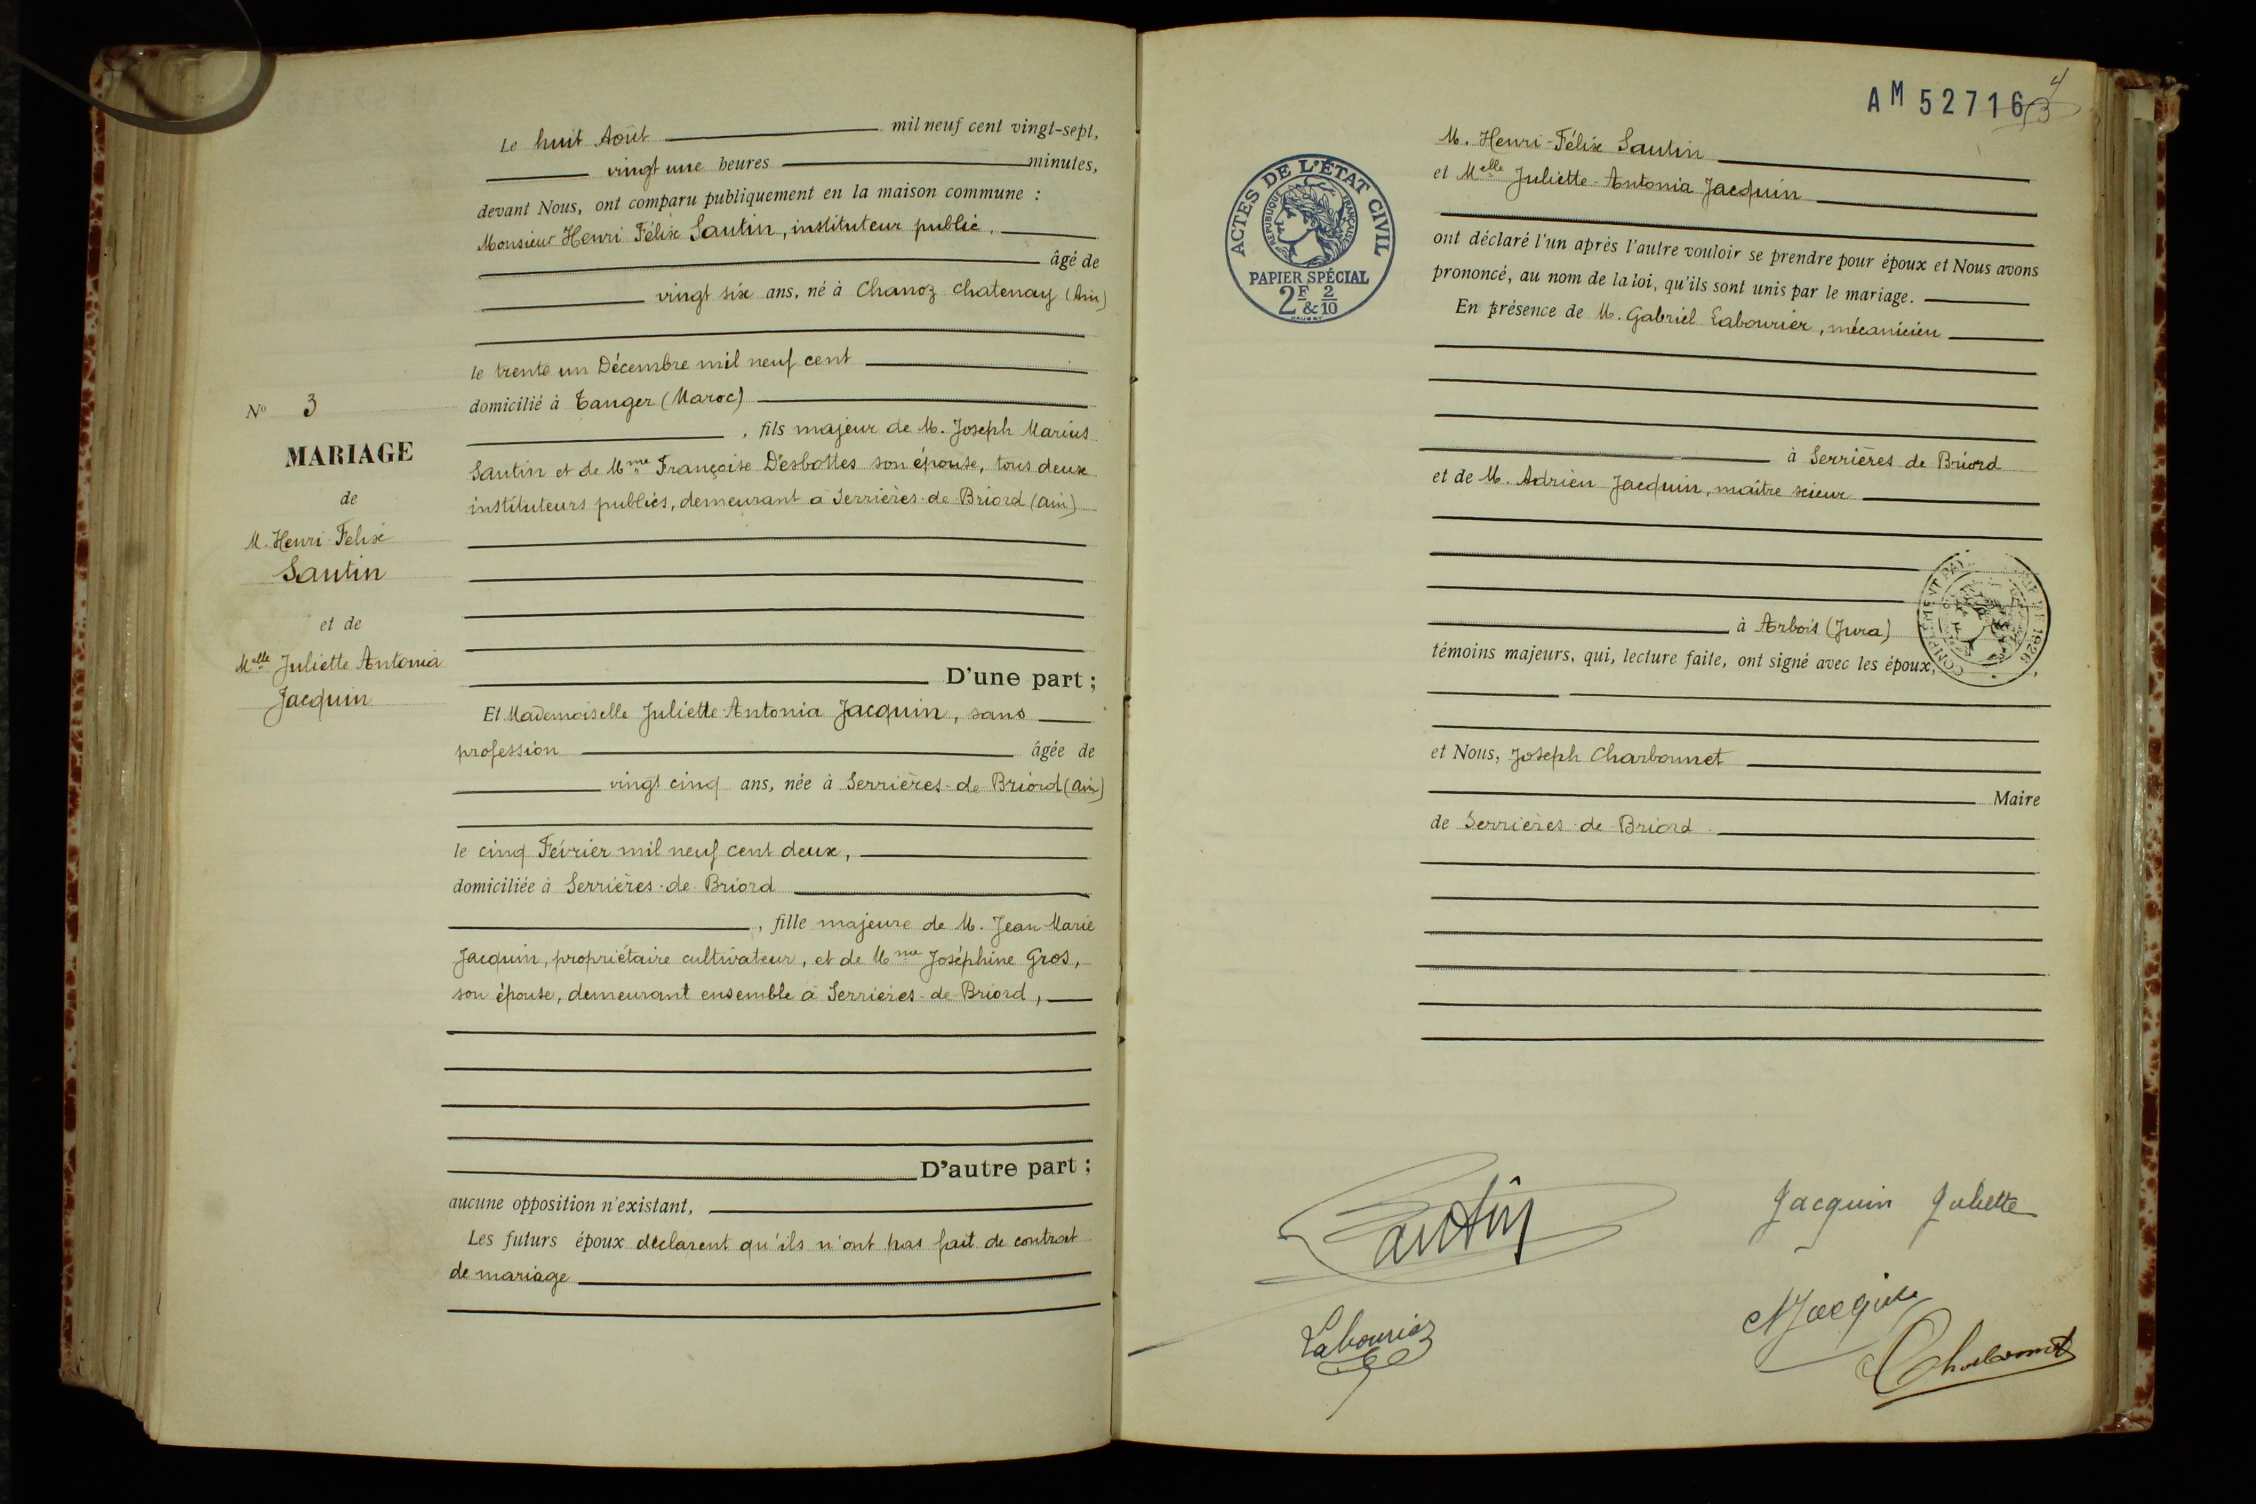 Le huit Août mil neuf cent vingt-sept,
vingt une heures minutes,
devant Nous, ont comparu publiquement en la maison commune :
Monsieur Henri Félix Sautin, instituteur public,
âgé de
vingt six ans, né à Chanoz Chatenay (Ain)
le trente un Décembre mil neuf cent
domicilié à Tanger (Maroc)
, fils majeur de M. Joseph Marius
Sautin et de Mme Françoise Desbottes son épouse, tous deux
instituteurs publics, demeurant à Serrières-de-Briord (Ain)
No 3
MARIAGE
de
M. Henri-Félix
Sautin
et de
Melle Juliette Antonia
Jacquin
D'une part ;
Et Mademoiselle Juliette-Antonia Jacquin, sans
profession âgée de
vingt cinq ans, née à Serrières-de-Briord (Ain)
le cinq Février mil neuf cent deux,
domiciliée à Serrières-de-Briord
, fille majeure de M. Jean Marie
Jacquin, propriétaire cultivateur, et de Mme Joséphine Gros,
son épouse, demeurant ensemble à Serrières-de-Briord,
D'autre part ;
aucune opposition n'existant,
Les futurs époux déclarent qu'ils n'ont pas fait de contrat
de mariage
AM 52716
3
4
ACTES DE L'ÉTAT CIVIL
RÉPUBLIQUE FRANÇAISE
PAPIER SPÉCIAL
2F & 2/10
M. Henri-Félix Sautin
et Melle Juliette-Antonia Jacquin
ont déclaré l'un après l'autre vouloir se prendre pour époux et Nous avons
prononcé, au nom de la loi, qu'ils sont unis par le mariage.
En présence de M. Gabriel Labourier, mécanicien
à Serrières de Briord
et de M. Adrien Jacquin, maître scieur
à Arbois (Jura)
COMPLÉMENT 1926
témoins majeurs, qui, lecture faite, ont signé avec les époux,
et Nous, Joseph Charbonnet
Maire
de Serrières-de-Briord
Sautin
Jacquin Juliette
Labourier
A Jacquin
Charbonnet